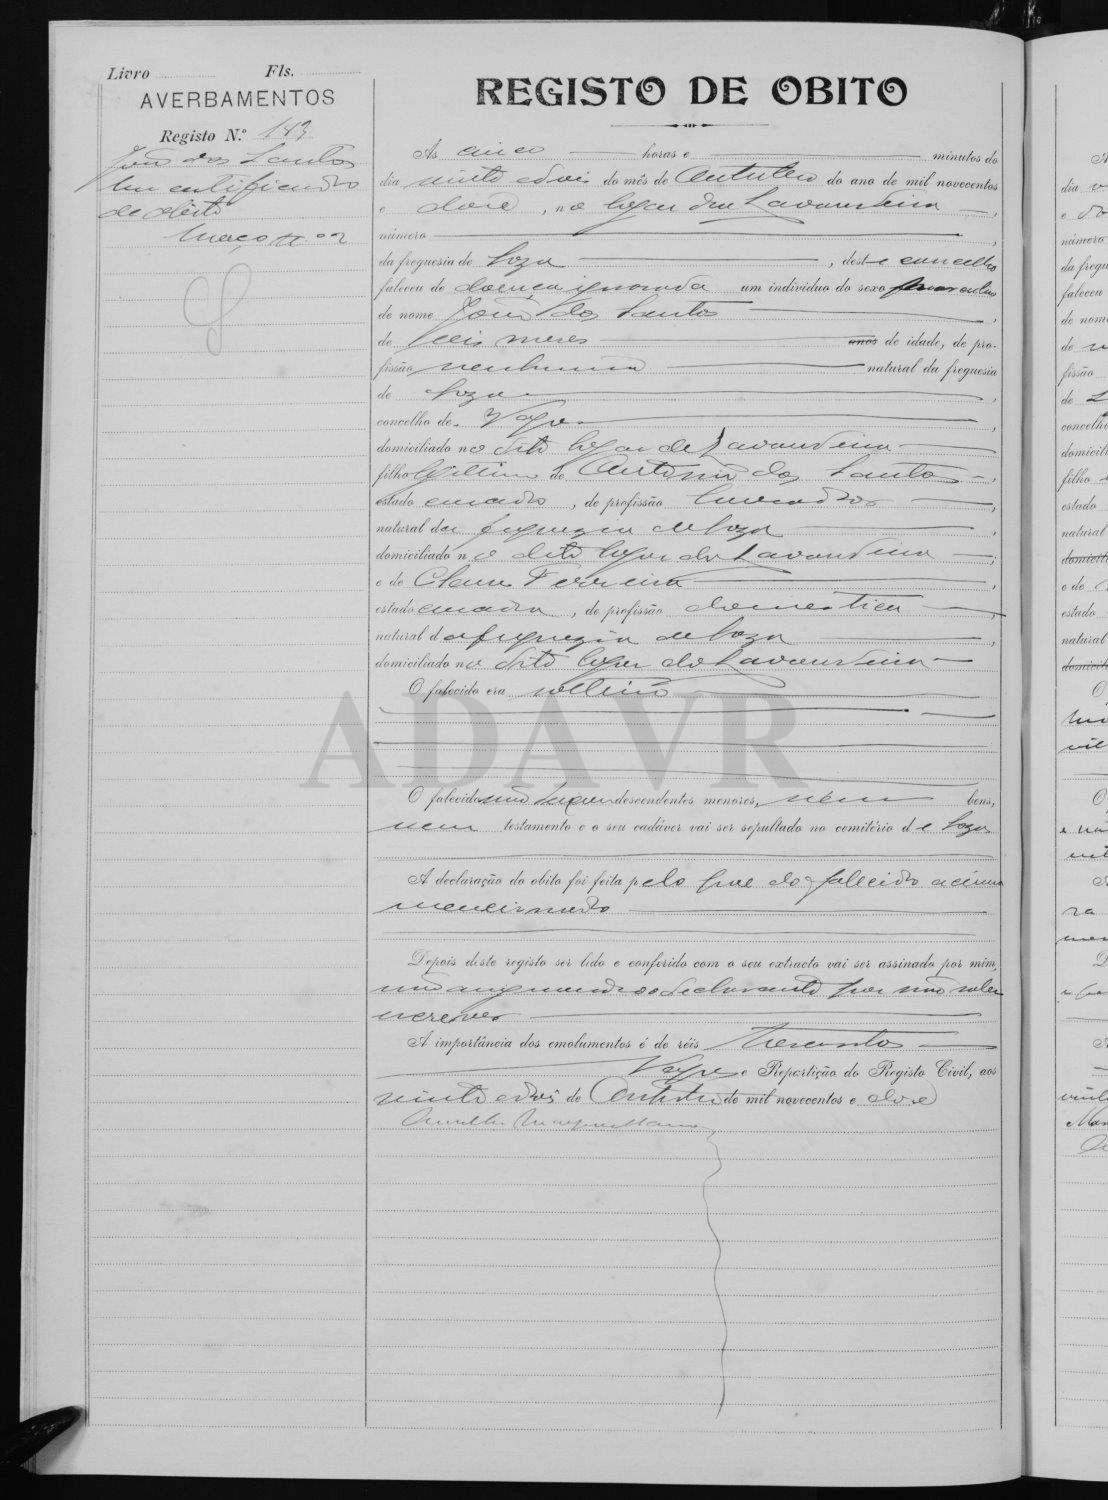 Livro Fls.
AVERBAMENTOS
Registo N.º 183
João dos Santos
Um certificado
de obito
Maço nº 2
REGISTO DE OBITO
As cinco horas e minutos do
dia vinte e dois do mês de Outubro do ano de mil novecentos
e doze, no logar da Lavandeira,
número
da freguesia de Soza, deste concelho
faleceu de doença ignorada um individuo do sexo masculino
de nome João dos Santos,
de seis meses anos de idade, de pro-
fissão nenhuma natural da freguesia
de Soza,
concelho de Vagos,
domiciliado no dito logar de Lavandeira
filho legitimo de Antonio dos Santos,
estado casado, de profissão lavrador,
natural da freguezia de Soza
domiciliado no dito logar da Lavandeira;
e de Clara Ferreira,
estado casada, de profissão domestica
natural da freguezia de Soza,
domiciliado no dito logar da Lavandeira
O falecido era solteiro
ADAVR
O falecido não deixou descendentes menores, nem bens,
nem testamento e o seu cadáver vai ser sepultado no cemitério de Soza
A declaração do obito foi feita pelo pae do falecido acima
mencionado
Depois deste registo ser lido e conferido com o seu extracto vai ser assinado por mim,
não assignando o declarante por não saber
escrever
A importância dos emolumentos é de réis trezentos
Vagos e Repartição do Registo Civil, aos
vinte e dois de Outubro de mil novecentos e doze